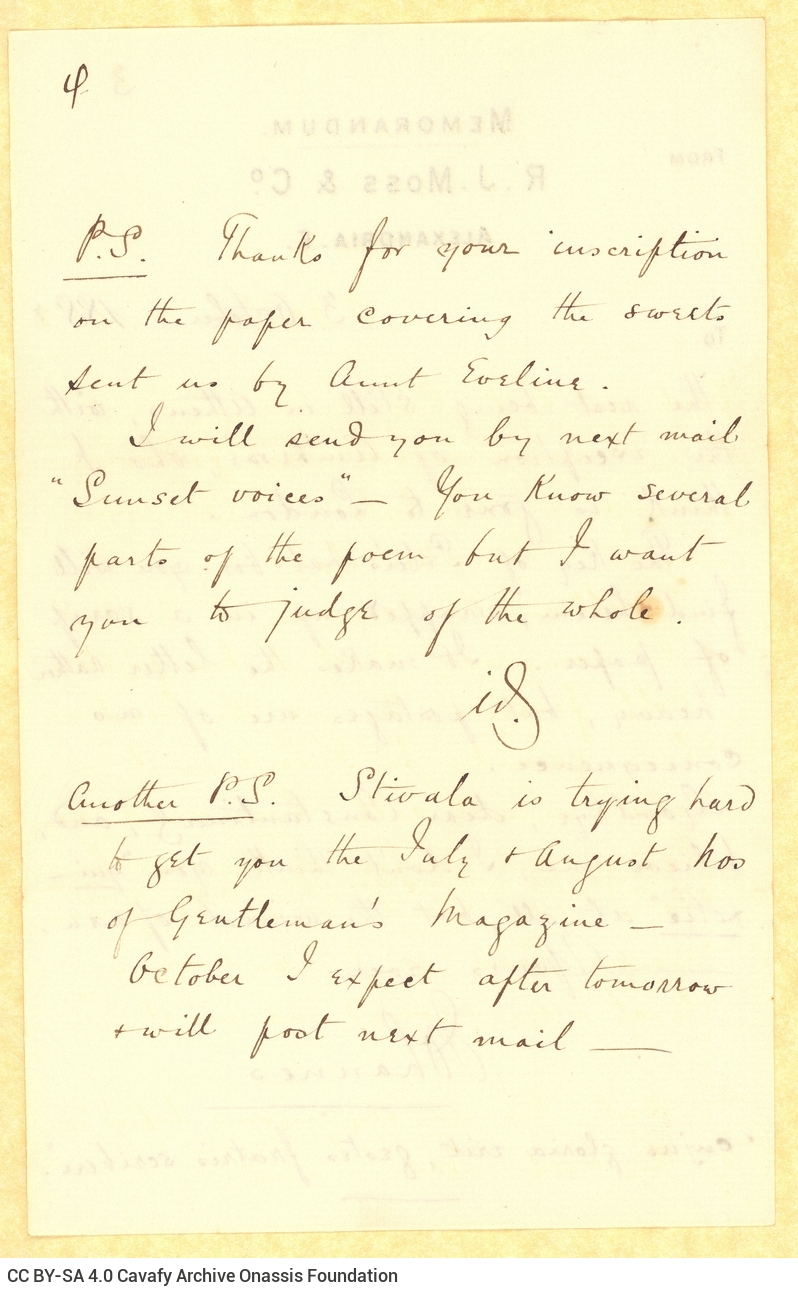 4
P.S. Thanks for your inscription
on the paper covering the sweets
sent us by Aunt Eveline.
I will send you by next mail
"Sunset voices" — You know several
parts of the poem but I want
you to judge of the whole.
id.
Another P.S. Stivala is trying hard
to get you the July & August Nos
of Gentleman's Magazine —
October I expect after tomorrow
& will post next mail —
MEMORANDUM.
FROM
R. J. MOSS & Co
ALEXANDRIA
CC BY-SA 4.0 Cavafy Archive Onassis Foundation